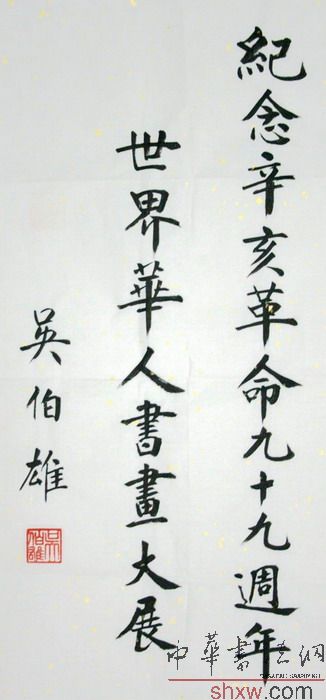 紀念辛亥革命九十九週年
世界華人書畫大展
吳伯雄
吳伯雄
中華書法網
shxw.com